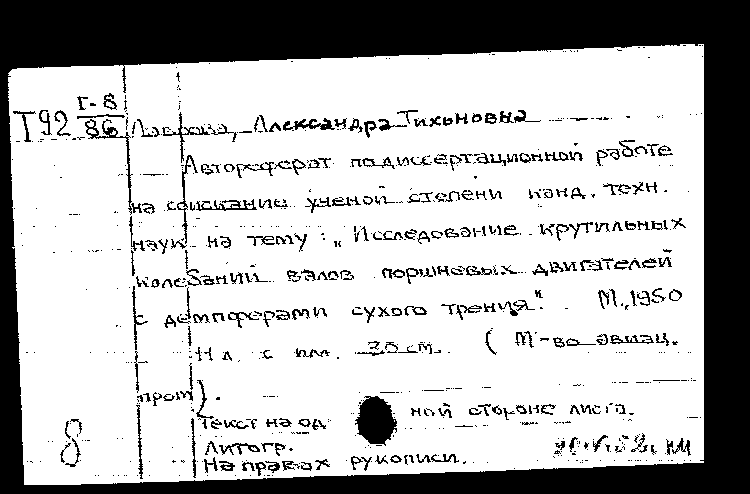 Т92 Г-8
86 Лаврова, Александра Тихоновна
Автореферат по диссертационной работе
на соискание ученой степени канд. техн.
наук на тему: „Исследование крутильных
колебаний валов поршневых двигателей
с демпферами сухого трения". М., 1950
11 л. с илл. 30 см. (М-во авиац.
пром).
Текст на од ной стороне листа.
8 Литогр.
На правах рукописи.